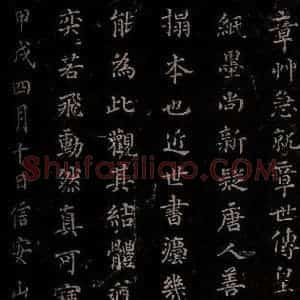 章艸急就章世傳皇
紙墨尚新疑唐人善
搨本也近世書幾
能為此觀其結體
奕若飛動然真可寶
甲戌四月十日信安山
Shufaziliao.com